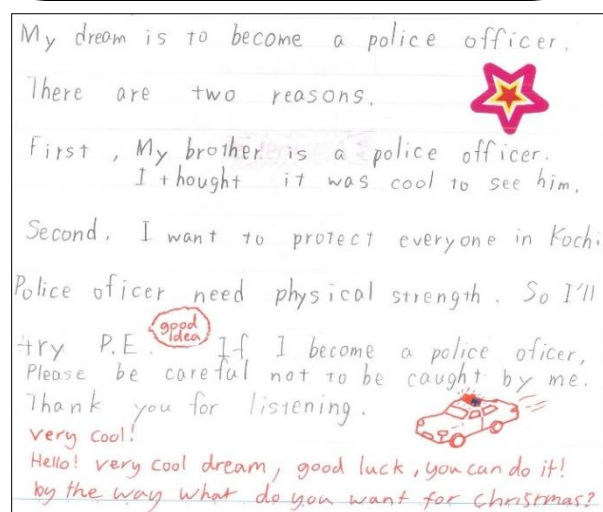 My dream is to become a police officer.
There are two reasons.
First, My brother is a police officer.
I thought it was cool to see him.
Second. I want to protect everyone in Kochi
Police oficer need physical strength. So I'll
try P.E. good idea If I become a police oficer,
Please be careful not to be caught by me.
Thank you for listening.
very cool!
Hello! very cool dream, good luck, you can do it!
by the way what do you want for christmas?